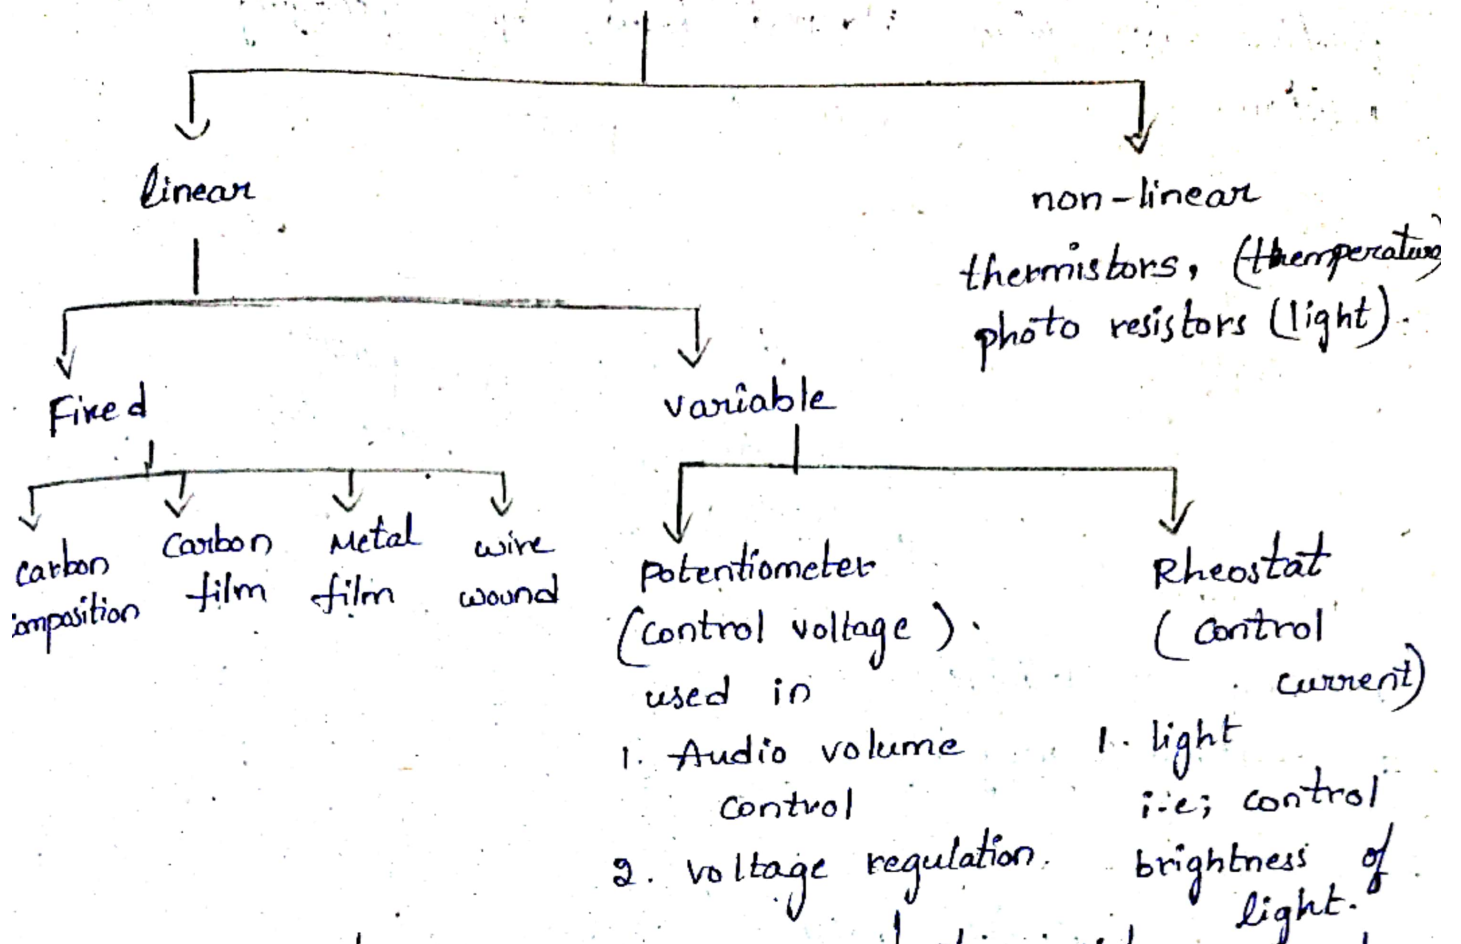 linear
non-linear
thermistors, (themperature)
photo resistors (light).
Fixed
variable
carbon
omposition
carbon
film
Metal
film
wire
wound
potentiometer
(control voltage).
used in
1. Audio volume
control
2. voltage regulation.
Rheostat
(control
current)
1. light
i.e; control
brightness of
light.